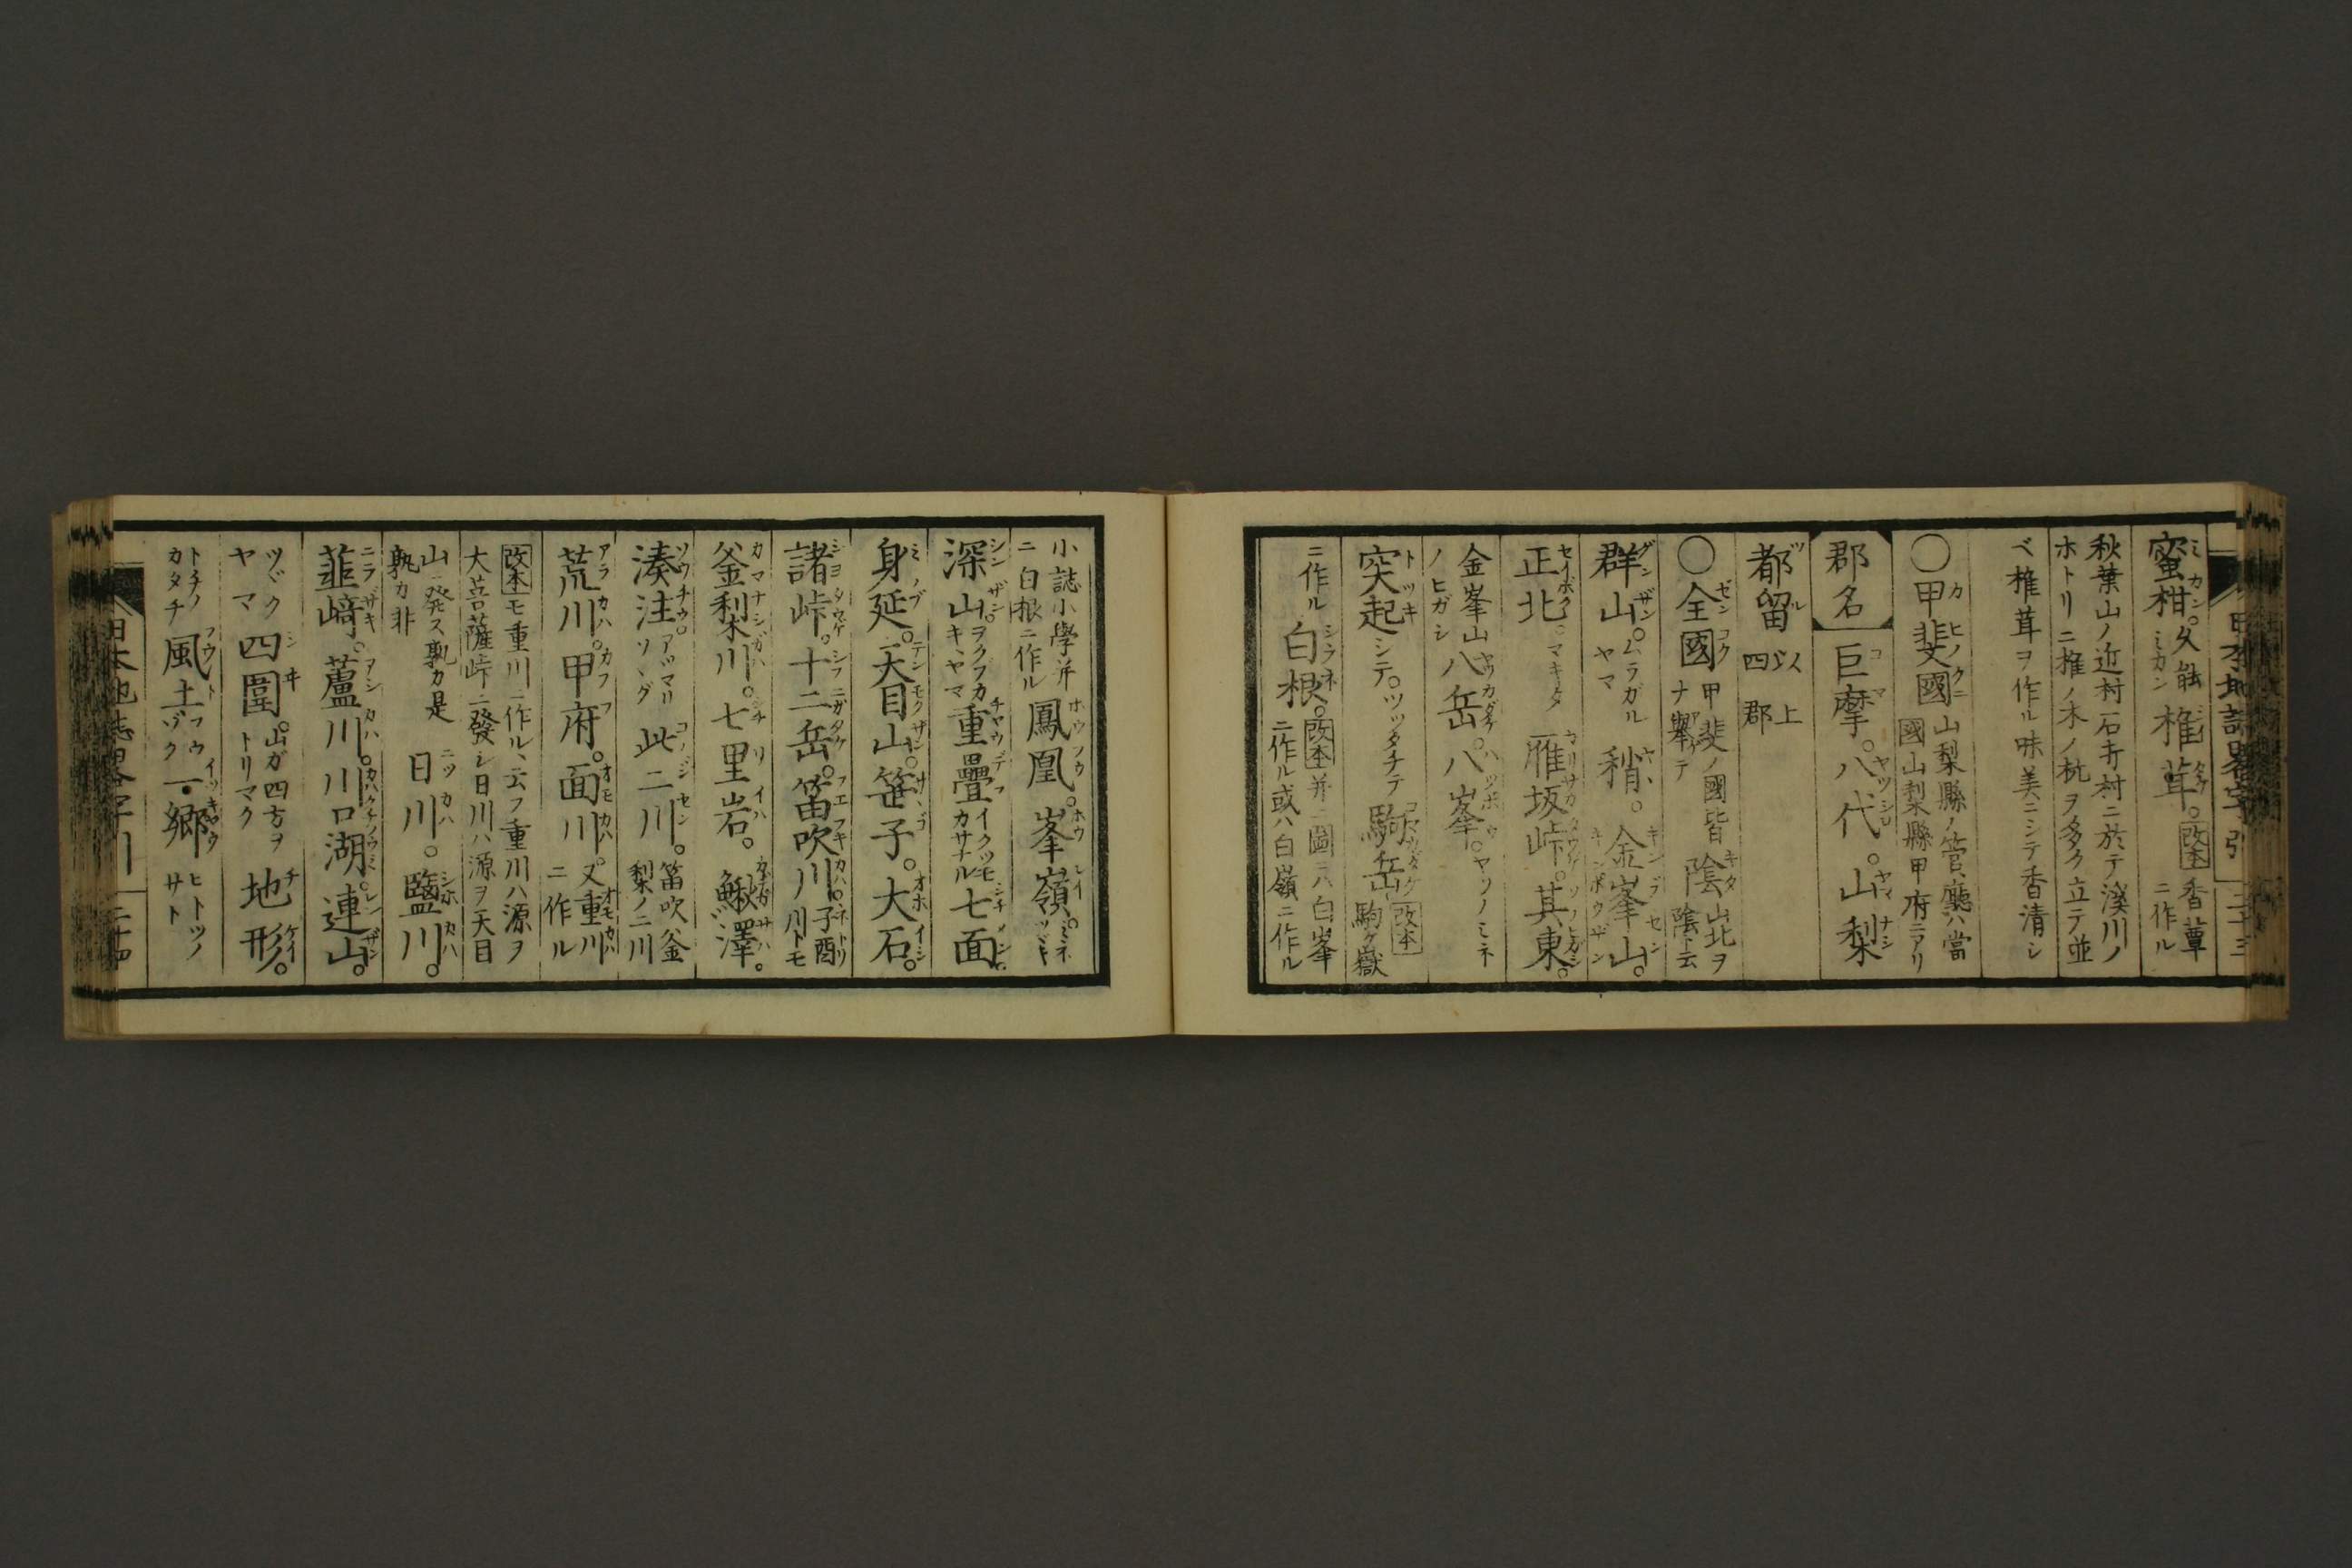 蜜柑。ミカン 久能 椎茸。改本 香蕈ニ作ル
秋葉山ノ近村石寺村ニ於テ溪川ノ
ホトリニ椎ノ木ノ杭ヲ多ク立テ並
ベ椎茸ヲ作ル味美ニシテ香清シ
○甲斐國 山梨縣ノ管廳ハ當國山梨縣甲府ニアリ
郡名 巨摩。八代。山梨
都留 以上四郡
○全國 甲斐ノ國皆ナ擧テ 陰 山北ヲ陰ト云
群山。ムラガルヤマ 稍。金峯山。
正北。マキタ 雁坂峠。其東。
ノヒガシ 金峯山 八岳。八峯。ヤツノミネ
突起シテ。ツッタチテ 駒岳 改本 駒ケ嶽
ニ作ル 白根。改本并ニ圖ニハ白峯ニ作ル或ハ白嶺ニ作ル
小誌小學并ニ白根ニ作ル 鳳凰。峯嶺。ミネツヾキ
深山。ヲクフカキヤマ 重疊 イクツモカサナル 七面
身延。天目山。笹子。大石。
諸峠。十二岳。笛吹川。子酉川トモ
釜梨川。七里岩。鰍澤。
湊注。アツマリソヽグ 此二川。笛吹釜梨ノ二川
荒川。甲府。面川。又重川ニ作ル
改本モ重川ニ作ル、云フ重川ハ源ヲ
大菩薩峠ニ發シ日川ハ源ヲ天目
山ニ発ス孰カ是孰カ非 日川。鹽川。
韮﨑。蘆川。川口湖。連山。
ツヾクヤマ 四圍。山ガ四方ヲトリマク 地形。
トチノカタチ 風土 一郷 ヒトツノサト
日本地誌略字引 二十四